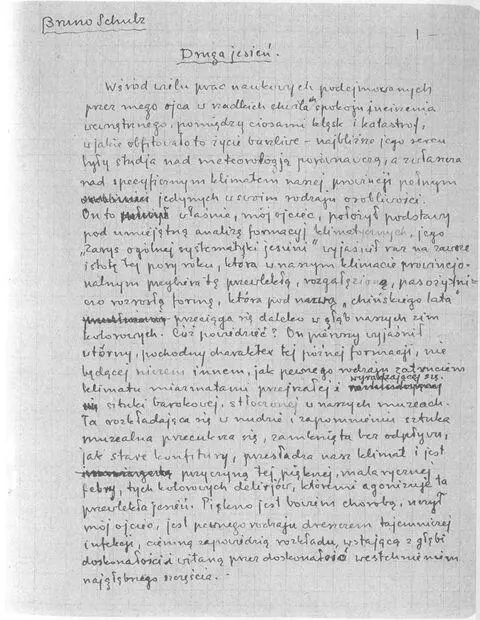 Bruno Schulz
1 –
Druga jesień.
Wśród wielu prac naukowych podejmowanych
przez mego ojca w rzadkich chwilach spokoju i uciszenia
wewnętrznego, pomiędzy ciosami klęsk i katastrof,
w jakie obfitowało to życie burzliwe – najbliższe jego sercu
były studja nad meteorologją porównawczą, a zwłaszcza
nad specyficznym klimatem naszej prowincji pełnym
jedynych w swoim rodzaju osobliwości.
On to właśnie, mój ojciec, położył podstawy
pod umiejętną analizę formacyj klimatycznych, jego
"Zarys ogólnej systematyki jesieni" wyjaśnił raz na zawsze
istotę tej pory roku, która w naszym klimacie prowincjo-
nalnym przybiera tę przewlekłą, rozgałęzioną, pasożytni-
czo rozrosłą formę, która pod nazwą "chińskiego lata"
przeciąga się daleko w głąb naszych zim
kolorowych. Cóż powiedzieć? On pierwszy wyjaśnił
wtórny, pochodny charakter tej późnej formacji, nie
będącej niczem innem, jak pewnego rodzaju zatruciem
klimatu miazmatami przejrzałej i wyradzającej się
sztuki barokowej, stłoczonej w naszych muzeach.
Ta rozkładająca się w nudzie i zapomnieniu sztuka
muzealna przecukrza się, zamknięta bez odpływu,
jak stare konfitury, przesładza nasz klimat i jest
przyczyną tej pięknej, malarycznej
febry, tych kolorowych delirjów, któremi agonizuje ta
przewlekła jesień. Piękno jest bowiem chorobą, uczył
mój ojciec, jest pewnego rodzaju dreszczem tajemniczej
infekcji, ciemną zapowiedzią rozkładu, wstającą z głębi
doskonałości i witaną przez doskonałość westchnieniem
najgłębszego szczęścia. –